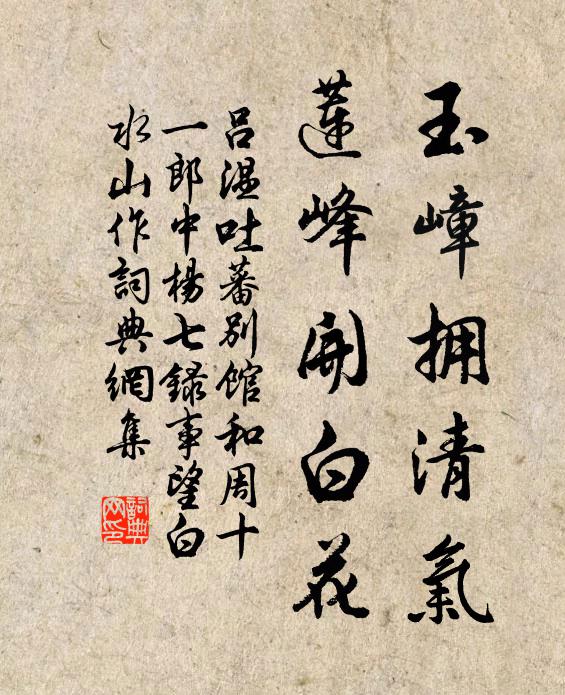 玉嶂拥清氣
蓮峰開白花
呂温吐蕃别館和周十
一郎中楊七録事望白
水山作詞典網集
詞典
网印